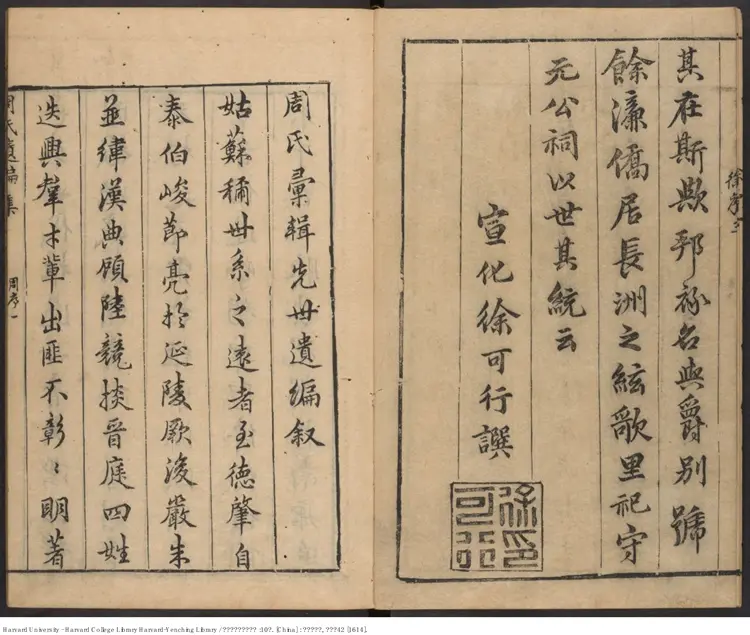 徐序三
其在斯歟邦祢名與爵别號
餘濂僑居長洲之絃歌里祀守
元公祠以世其統云
宣化徐可行譔
徐可行印
周氏彙輯先世遺編叙
姑蘇稱世系之遠者至德肇自
泰伯峻節亮於延陵厥後嚴朱
並緯漢典顧陸競掞晉庭四姓
迭興羣才輩出匪不彰彰明著
周氏遺編集
周序一
Harvard University - Harvard College Library Harvard-Yenching Library / ????????? :10?. [China] : ?????, ???42 [1614].